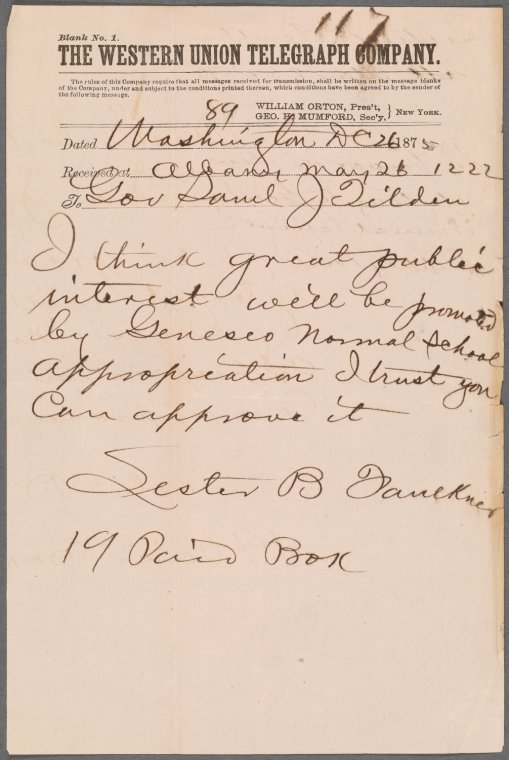 117
Blank No. 1.
THE WESTERN UNION TELEGRAPH COMPANY.
The rules of this Company require that all messages received for transmission, shall be written on the message blanks
of the Company, under and subject to the conditions printed thereon, which conditions have been agreed to by the sender of
the following message.
89 WILLIAM ORTON, Pres't,
GEO. H. MUMFORD, Sec'y, } NEW YORK.
Dated Washington DC 26 1875
Received at Albany May 26 1222
To Gov Saml J Tilden
I think great public
interest will be promoted
by Geneseo Normal School
appropriation I trust you
Can approve it
Lester B Faulkner
19 Paid Box